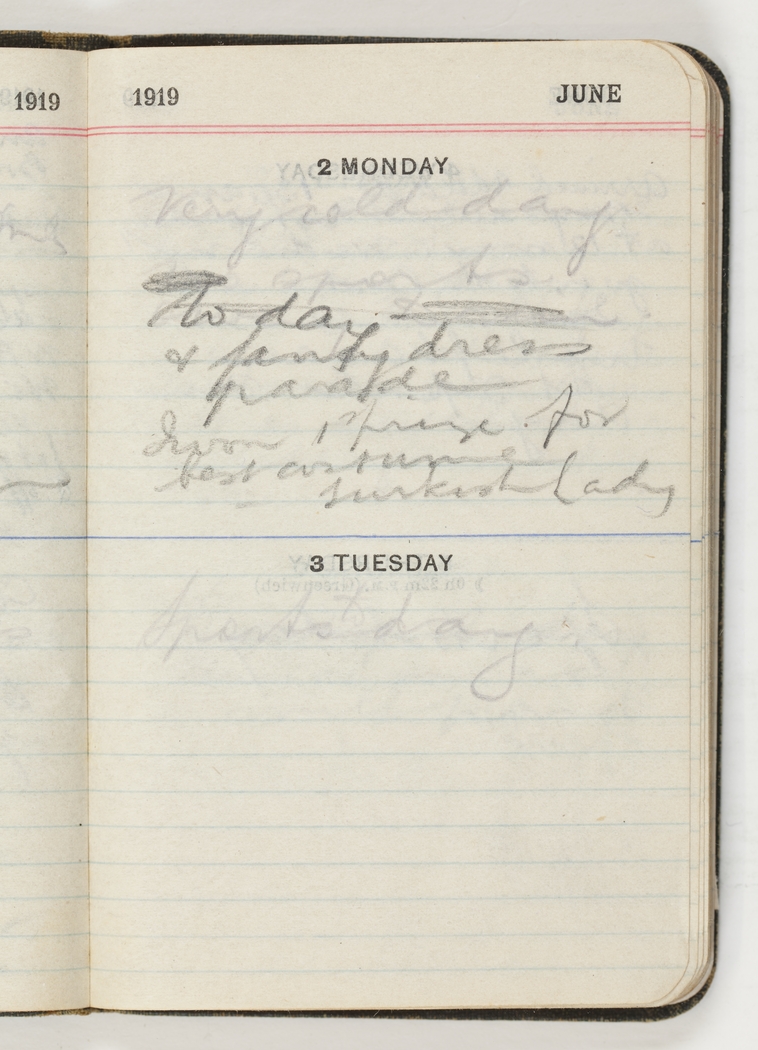 1919
1919 JUNE
2 MONDAY
Very cold day
sports
To day
& fancy dress
parade
I won 1st prize for
best costume
Turkish Lady
3 TUESDAY
Sports day